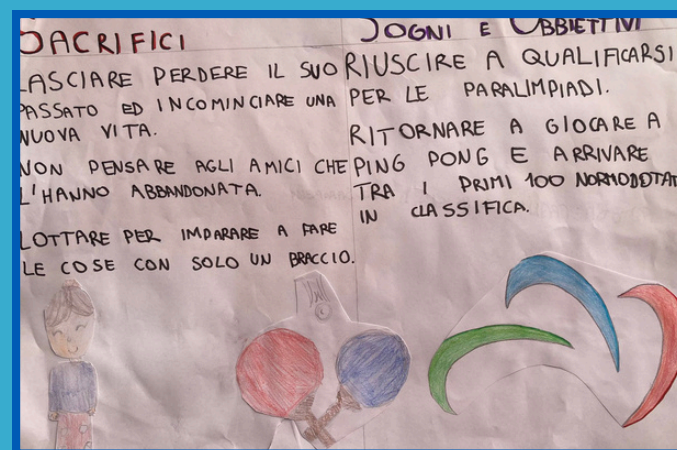 SACRIFICI
LASCIARE PERDERE IL SUO
PASSATO ED INCOMINCIARE UNA
NUOVA VITA.
NON PENSARE AGLI AMICI CHE
L'HANNO ABBANDONATA.
LOTTARE PER IMPARARE A FARE
LE COSE CON SOLO UN BRACCIO.
SOGNI E OBBIETTIVI
RIUSCIRE A QUALIFICARSI
PER LE PARALIMPIADI.
RITORNARE A GIOCARE A
PING PONG E ARRIVARE
TRA I PRIMI 100 NORMODOTAT
IN CLASSIFICA.